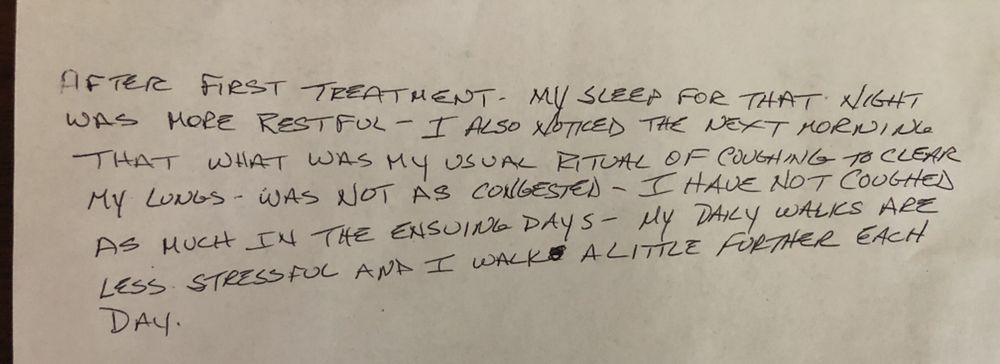 AFTER FIRST TREATMENT - MY SLEEP FOR THAT NIGHT
WAS MORE RESTFUL - I ALSO NOTICED THE NEXT MORNING
THAT WHAT WAS MY USUAL RITUAL OF COUGHING TO CLEAR
MY LUNGS - WAS NOT AS CONGESTED - I HAVE NOT COUGHED
AS MUCH IN THE ENSUING DAYS - MY DAILY WALKS ARE
LESS STRESSFUL AND I WALK A LITTLE FURTHER EACH
DAY.